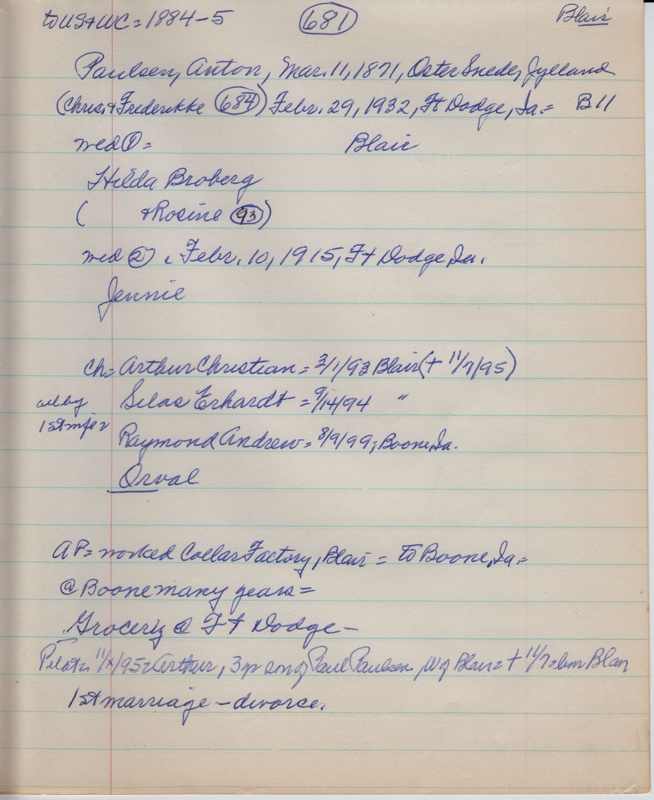 to US & WC = 1884-5 681 Blair
Paulsen, Anton, Mar. 11, 1871, Oster Snede, Jylland
(Chris. & Frederikke 684) Febr. 29, 1932, Ft Dodge, Ia.= B11
med ① = Blair
Hilda Broberg
( & Rosine 93)
med ②, Febr. 10, 1915, Ft Dodge, Ia.
Jennie
ch= Arthur Christian = 3/1/93 Blair (+ 11/7/95)
all by Silas Erhardt = 9/14/94 "
1st Raymond Andrew = 8/9/99; Boone, Ia.
Orval
AP= worked Collar Factory, Blair = to Boone, Ia.=
@ Boone many years=
Grocery @ Ft Dodge-
Pilot= 95= Arthur, son of Paul Paulsen, W of Blair= + 11/7= Blair
1st marriage - divorce.